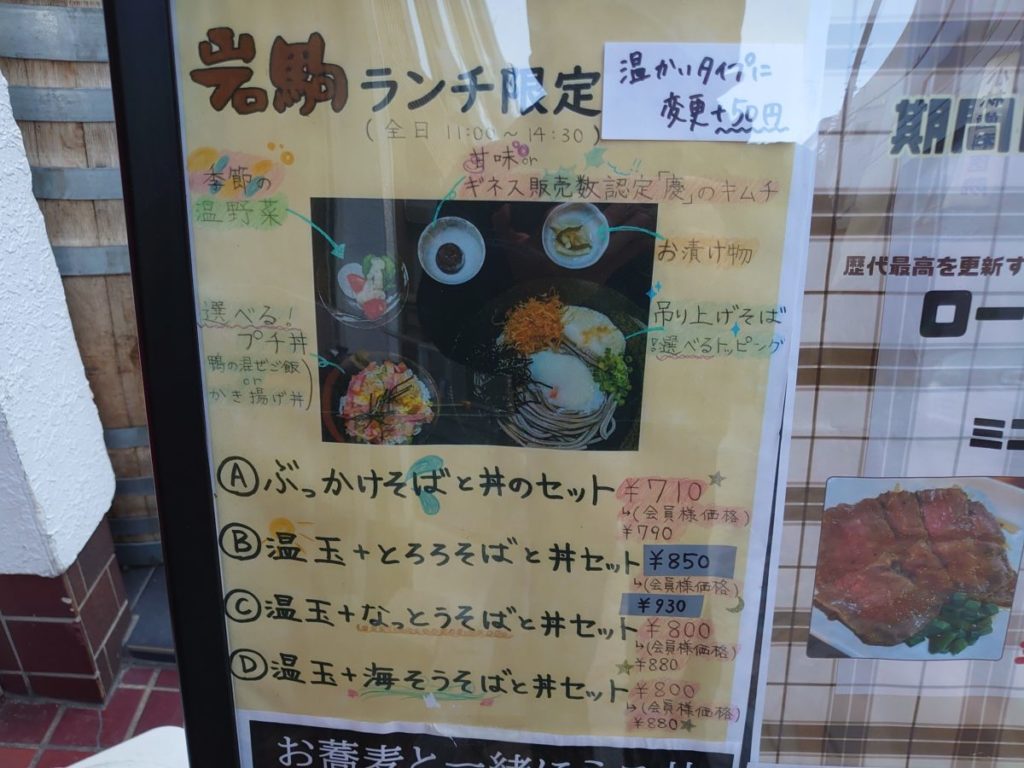 岩駒
ランチ限定
(全日 11:00～14:30)
温かいタイプに
変更+50円
季節の
温野菜
甘味or
ギネス販売数認定「慶」のキムチ
お漬け物
選べる!
プチ丼
鴨の混ぜご飯
or
かき揚げ丼
吊り上げそば
選べるトッピング
Ⓐぶっかけそばと丼のセット ¥710
↳(会員様価格)
¥790
Ⓑ温玉+とろろそばと丼セット ¥850
↳(会員様価格)
¥930
Ⓒ温玉+なっとうそばと丼セット ¥800
↳(会員様価格)
¥880
Ⓓ温玉+海そうそばと丼セット ¥800
↳(会員様価格)
¥880
お蕎麦と一緒に
期間
歴代最高を更新す
ロー
ミニ